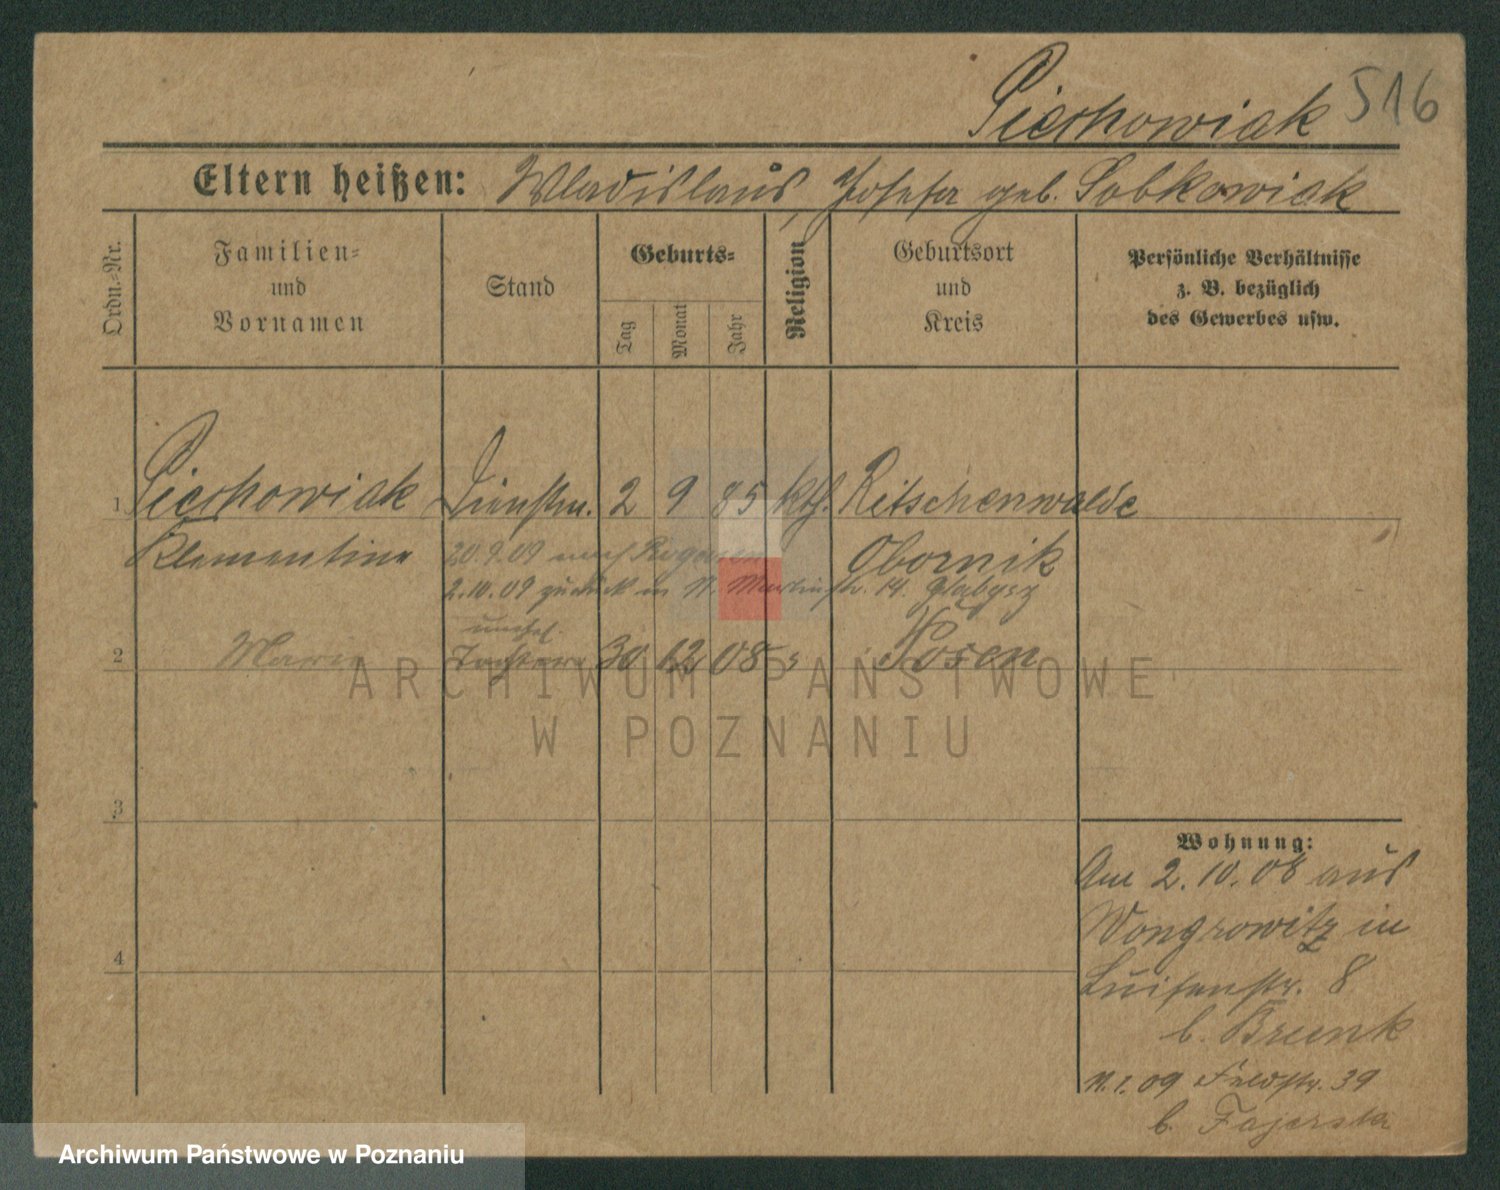 Piechowiak 516
Eltern heißen: Wladislaus, Josefa geb. Sobkowiak
Ordn.-Nr.
Familien-
und
Vornamen
Stand
Geburts-
Tag
Monat
Jahr
Religion
Geburtsort
und
Kreis
Persönliche Verhältnisse
z. B. bezüglich
des Gewerbes usw.
1 Piechowiak Dienstm. 2 9 85 kth. Ritschenwalde
Klementine Obornik
20.9.09 nach Rogasen
2.10.09 zurück in St. Martinstr. 14.
unehel.
2 Marie Tochter 30 12 08 Posen
3
4
Wohnung:
Am 2.10.08 aus
Wongrowitz in
Luisenstr. 8
b. Brunk
11.1.09 Feldstr. 39
b. Fajerska
ARCHIWUM PAŃSTWOWE
W POZNANIU
Archiwum Państwowe w Poznaniu